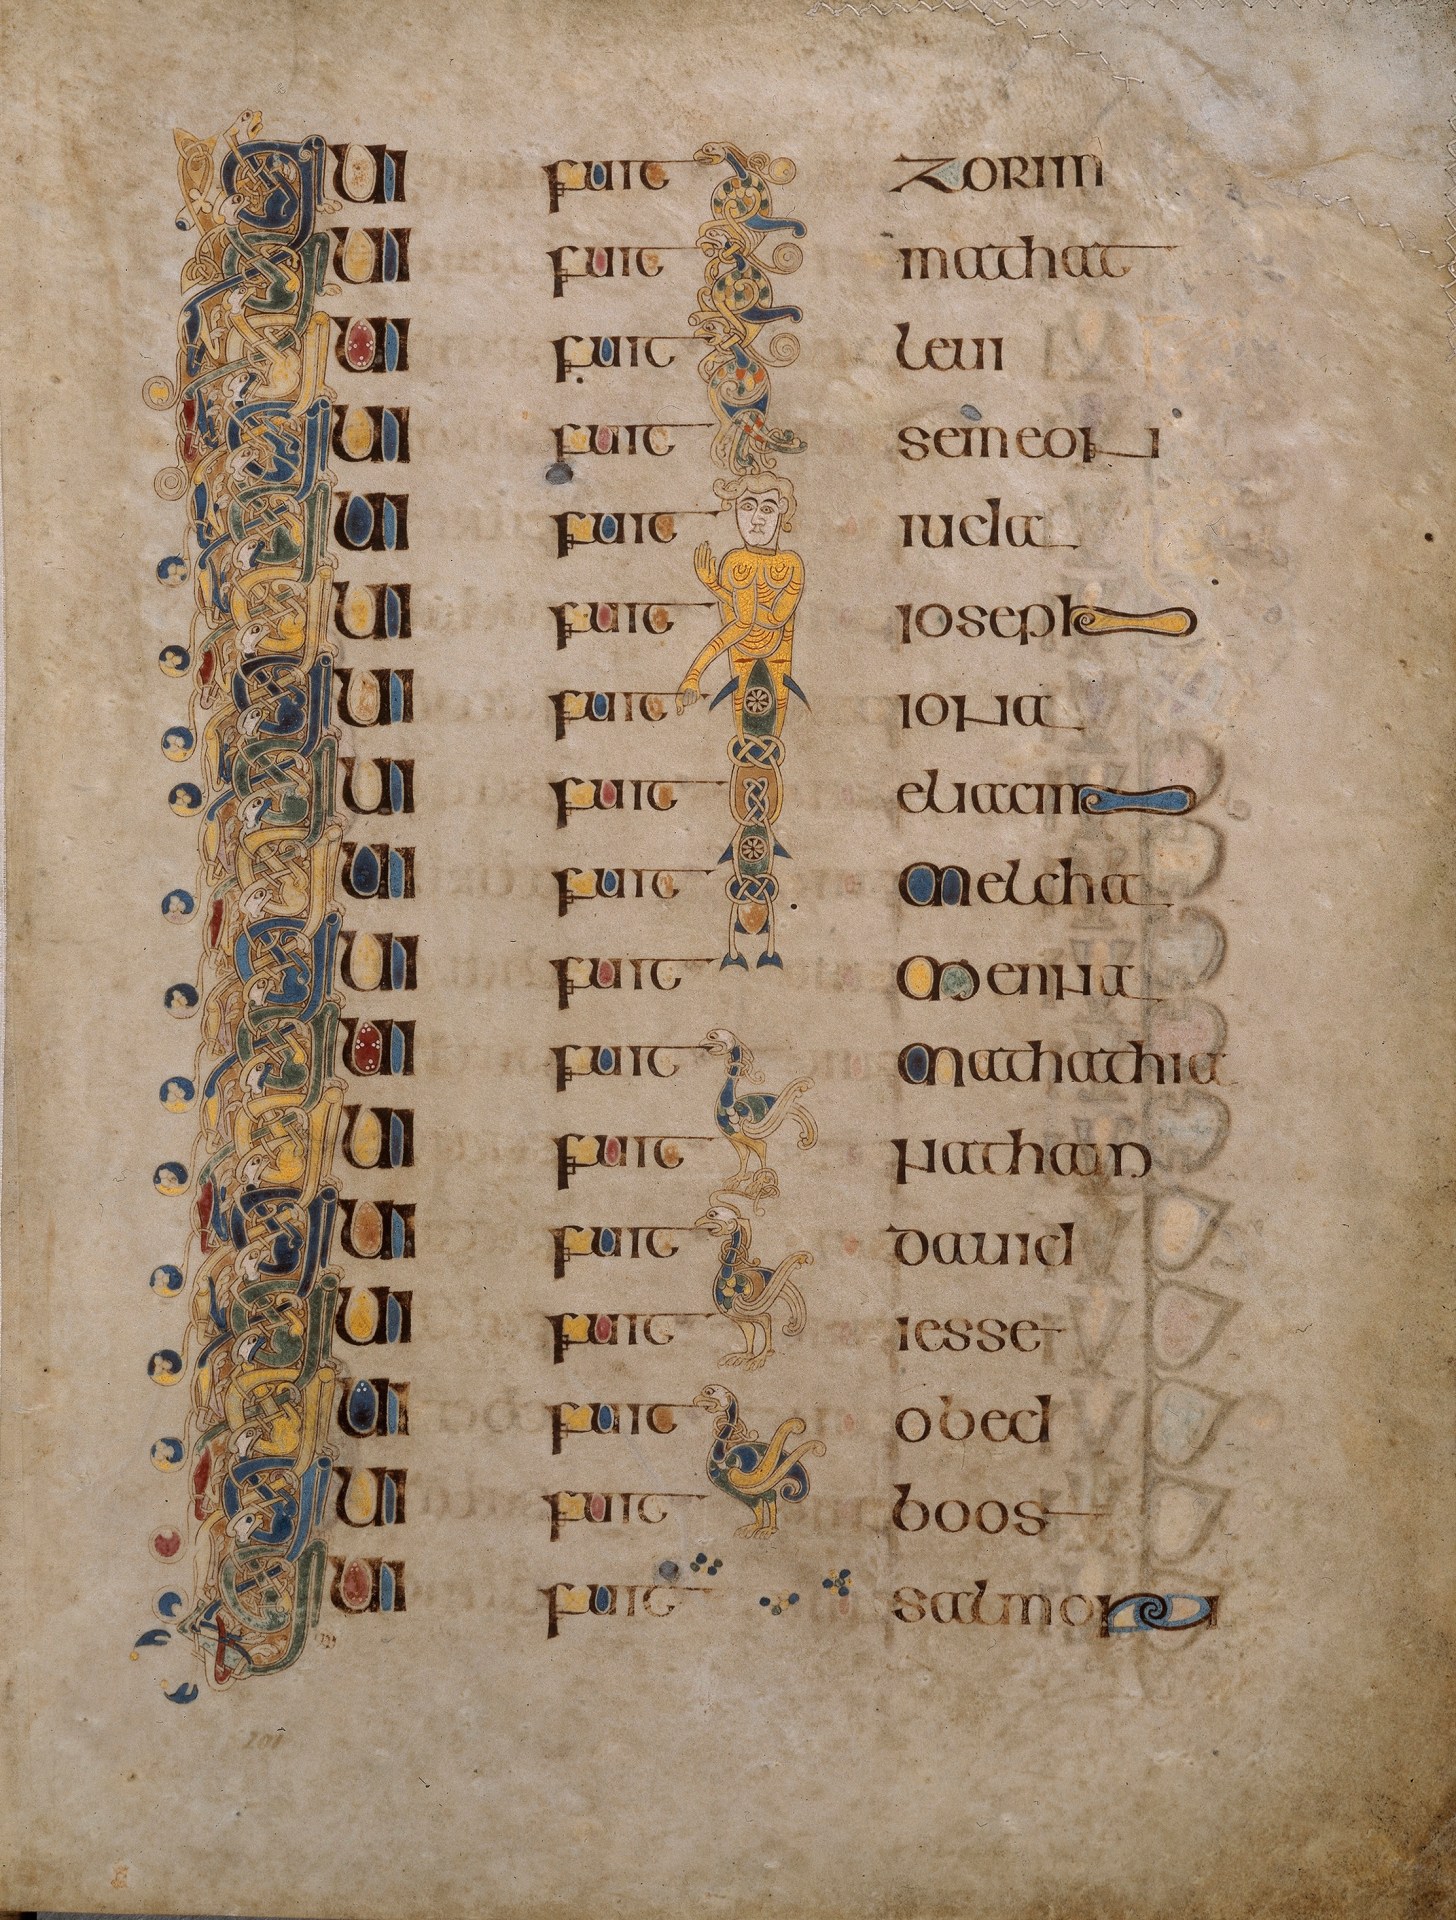 QUI fuit zorim
QUI fuit mathat
QUI fuit leui
QUI fuit semeon
QUI fuit iuda
QUI fuit ioseph
QUI fuit iona
QUI fuit eliacim
QUI fuit melcha
QUI fuit menna
QUI fuit mathathia
QUI fuit nathan
QUI fuit dauid
QUI fuit iesse
QUI fuit obed
QUI fuit boos
QUI fuit salmon
201